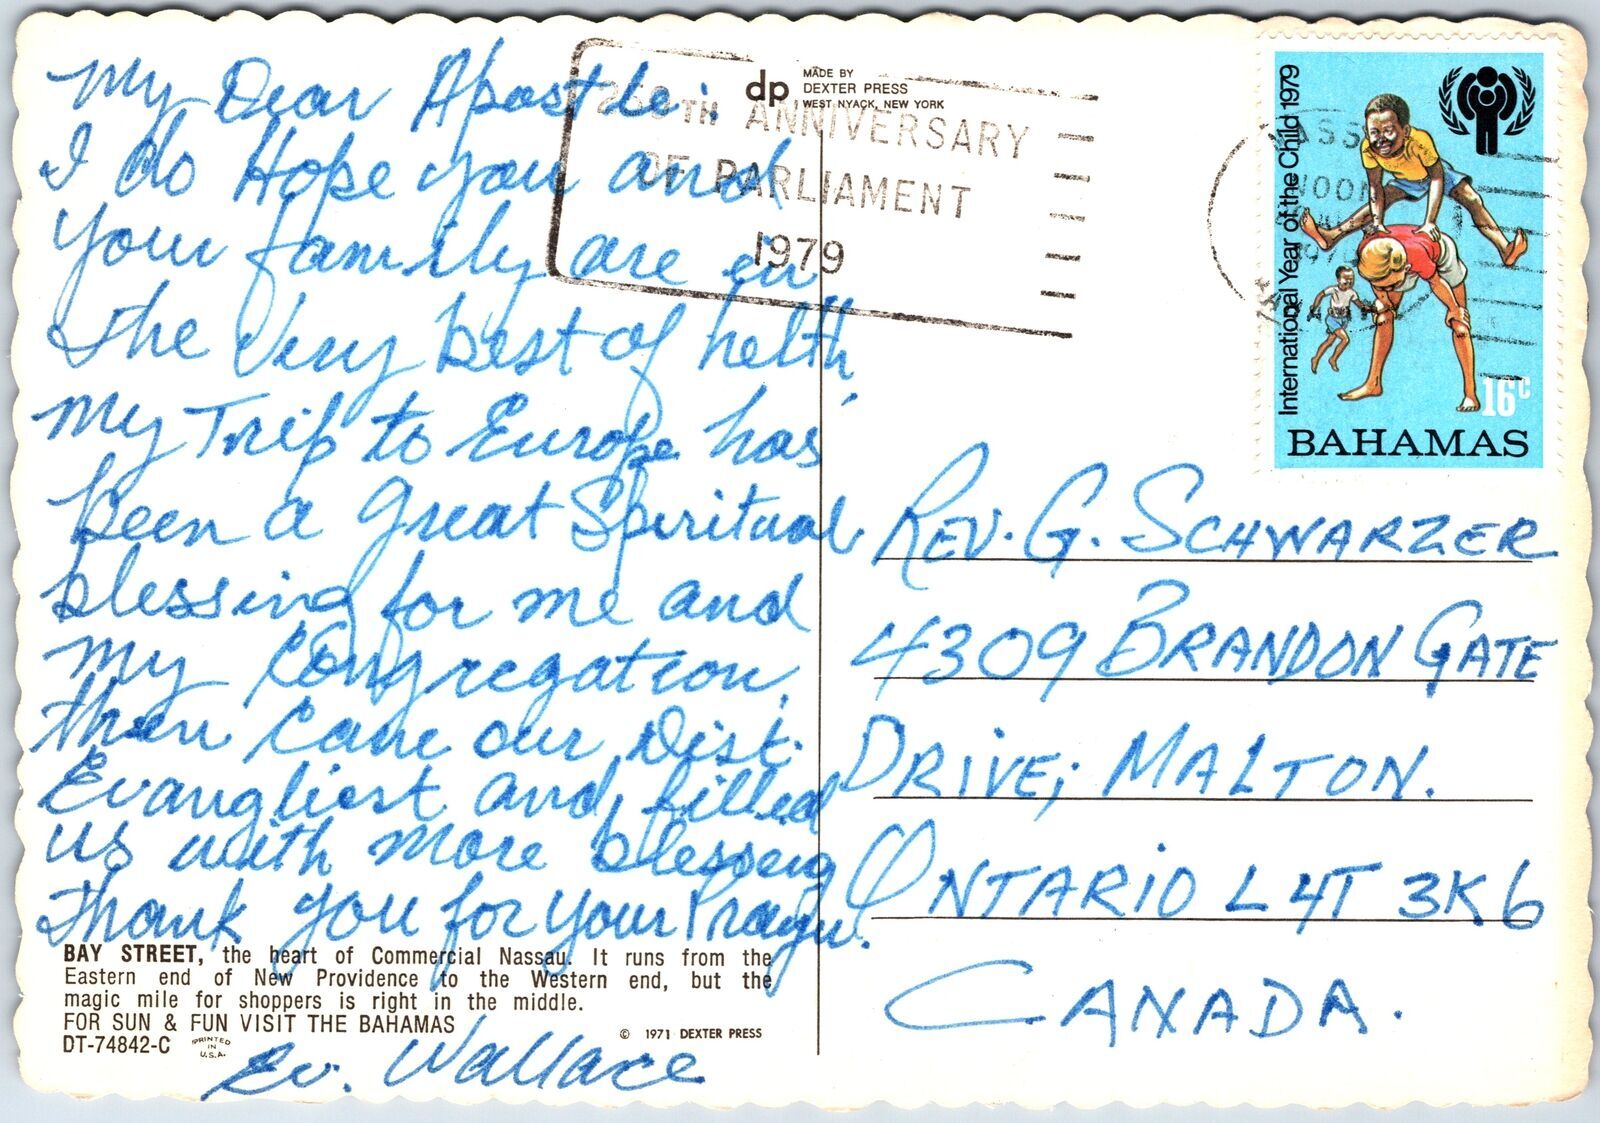 My Dear Apostle:
I do Hope you and
your family are in
the Very best of helth,
My Trip to Europe has
been a great Spiritual
blessing for me and
my Congregation,
then Came our Dist.
Evangliest and, filled
us with more blessing
Thank you for your Prayer.
Ev. Wallace
BAY STREET, the heart of Commercial Nassau. It runs from the
Eastern end of New Providence to the Western end, but the
magic mile for shoppers is right in the middle.
FOR SUN & FUN VISIT THE BAHAMAS
DT-74842-C
PRINTED
IN
U.S.A.
© 1971 DEXTER PRESS
dp
MADE BY
DEXTER PRESS
WEST NYACK, NEW YORK
250TH ANNIVERSARY
OF PARLIAMENT
1979
International Year of the Child 1979
16c
BAHAMAS
REV. G. SCHWARZER
4309 BRANDON GATE
DRIVE; MALTON.
ONTARIO L4T 3K6
CANADA.